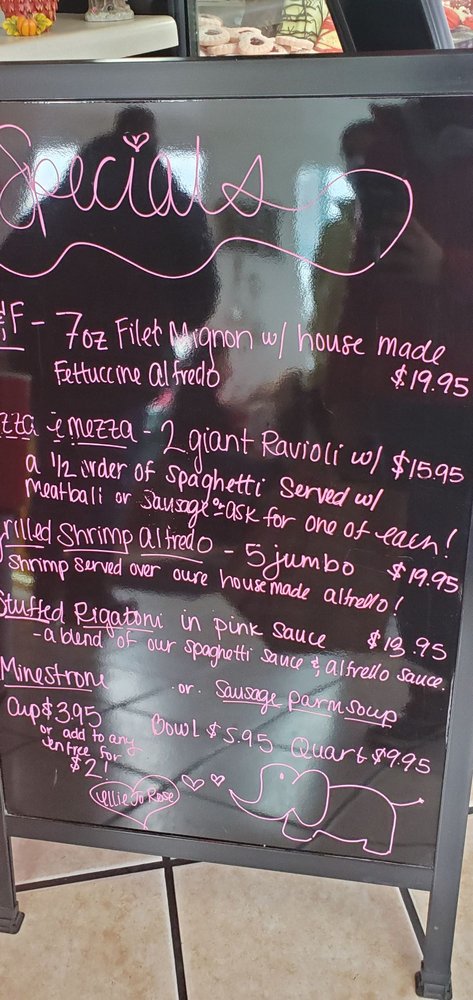 Specials
F - 7oz Filet Mignon w/ house made
Fettuccine alfredo $19.95
zza é mezza - 2 giant Ravioli w/ $15.95
a 1/2 order of spaghetti Served w/
Meatball or Sausage or ask for one of each!
rilled Shrimp alfredo - 5 jumbo $19.95
Shrimp Served over oure house made alfredo!
Stuffed Rigatoni in pink sauce $13.95
- a blend of our spaghetti sauce & alfrello sauce.
Minestrone .or. Sausage parm soup
Cup $3.95 Bowl $5.95 Quart $9.95
or add to any
entree for
$2!
Ellie Jo Rose